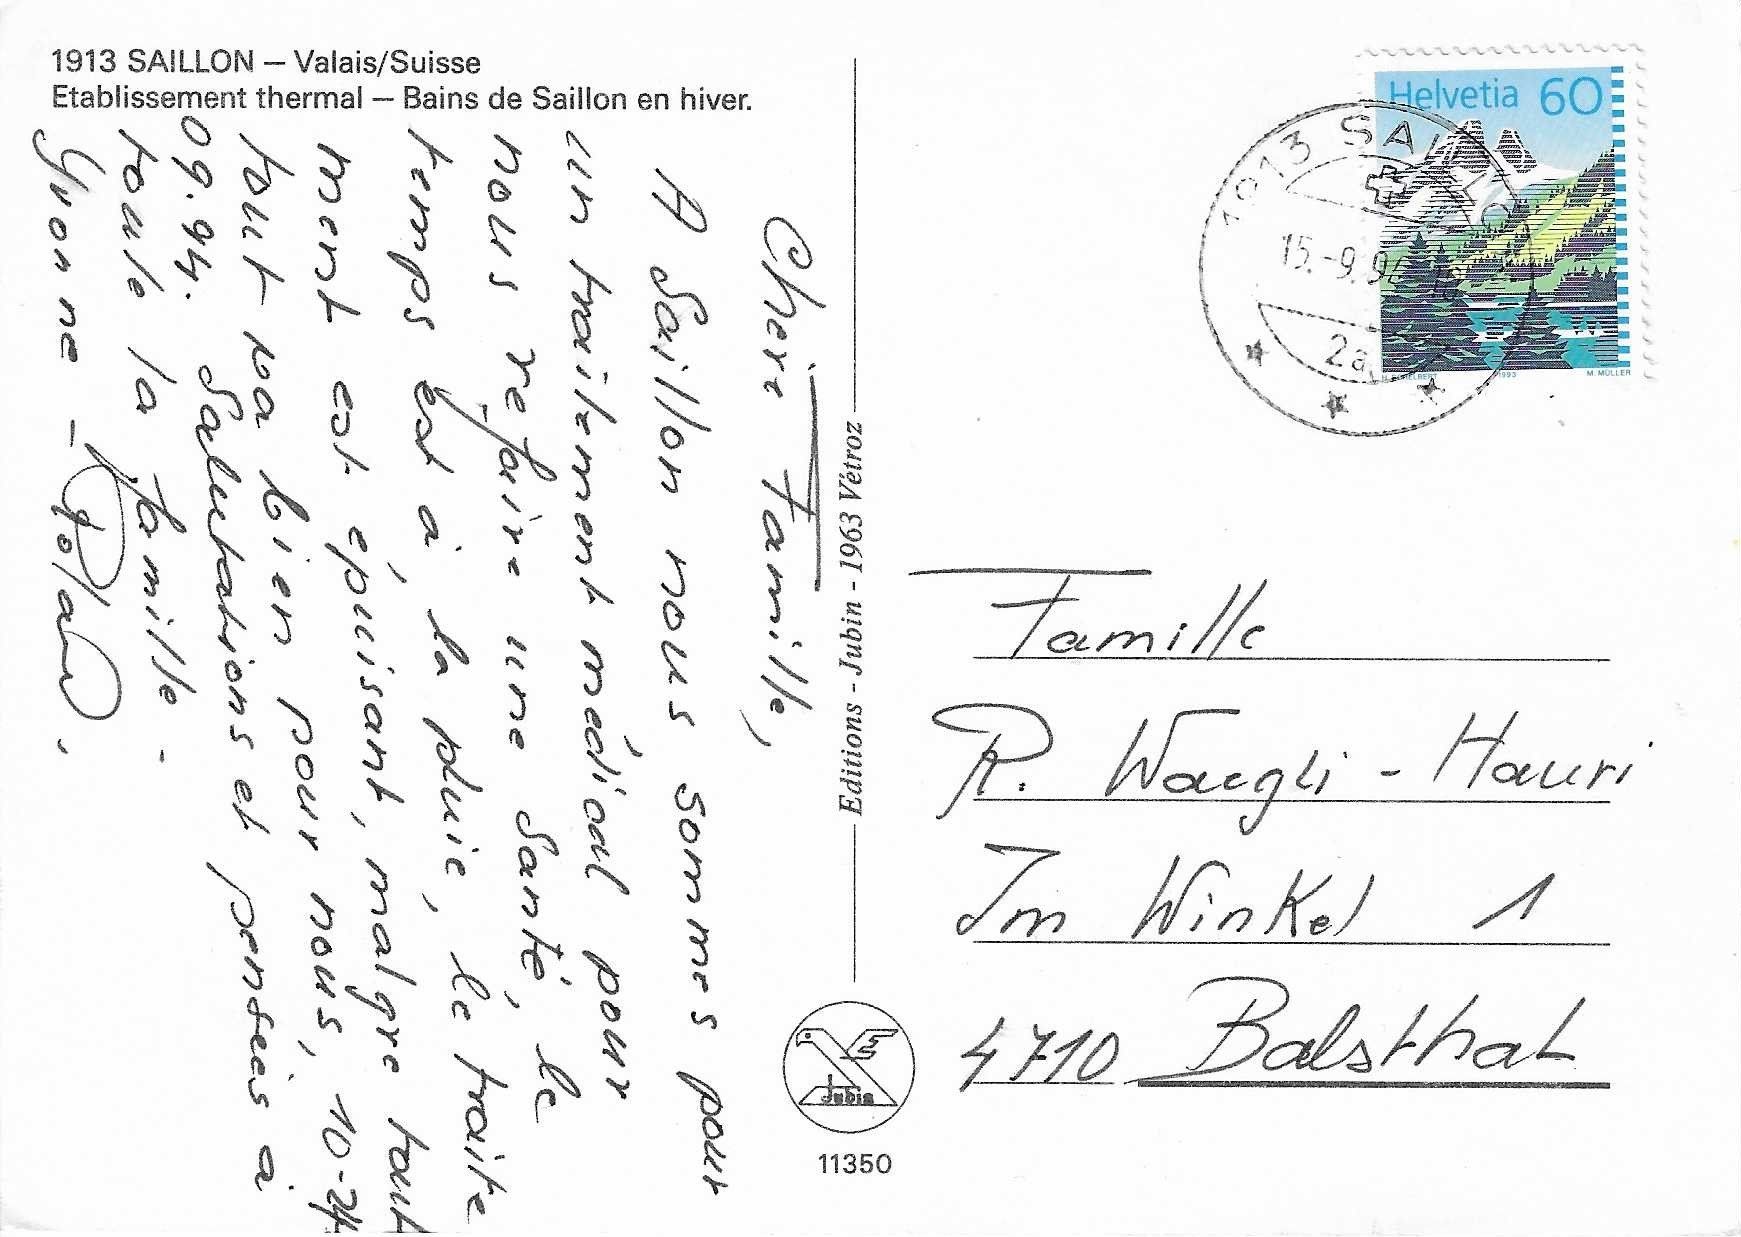 1913 SAILLON — Valais/Suisse
Etablissement thermal — Bains de Saillon en hiver.
Chère Famille,
A Saillon nous sommes pour
un traitement médical pour
nous refaire une santé, le
temps est à, la pluie, le traite
ment est épuisant, malgre tout
tout va bien pour nous, 10-24
09.94. Salutations et pensées à
toute la famille -
Yvonne - Roland.
Editions - Jubin - 1963 Vétroz
Jubin
11350
Helvetia 60
1993
M. MÜLLER
1913 SAILLON
15.-9.94
2a
Famille
R. Waegli - Hauri
Im Winkel 1
4710 Balsthal